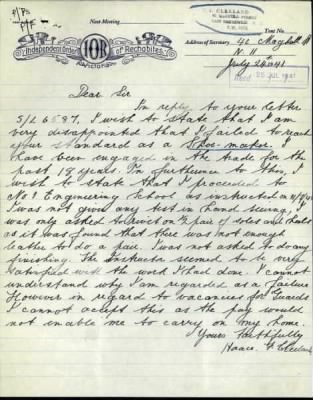 Next Meeting
J. CLELAND
Tent No
Address of Secretary 40 Mayhill
Independent Order IOR of Rechabites
July 24th 41
RECD 25 JUL 1941
Dear Sir
In reply to your letter
5/L 6587, I wish to state that I am
very disappointed that I failed to reach
your standard as a Shoe-maker. I
have been engaged in the trade for the
past 19 years. In furtherance to this, I
wish to state that I proceeded to
No 1 Engineering School as instructed on
I was not given any test in hand sewing, I
was only asked to rivet on 1 pair of soles and heels
as it was found that there was not enough
leather to do a pair. I was not asked to do any
finishing. The instructor seemed to be very
satisfied with the work I had done. I cannot
understand why I am regarded as a failure
However in regard to vacancies for Guards
I cannot accept this as the pay would
not enable me to carry on my home.
Yours faithfully
Cleland